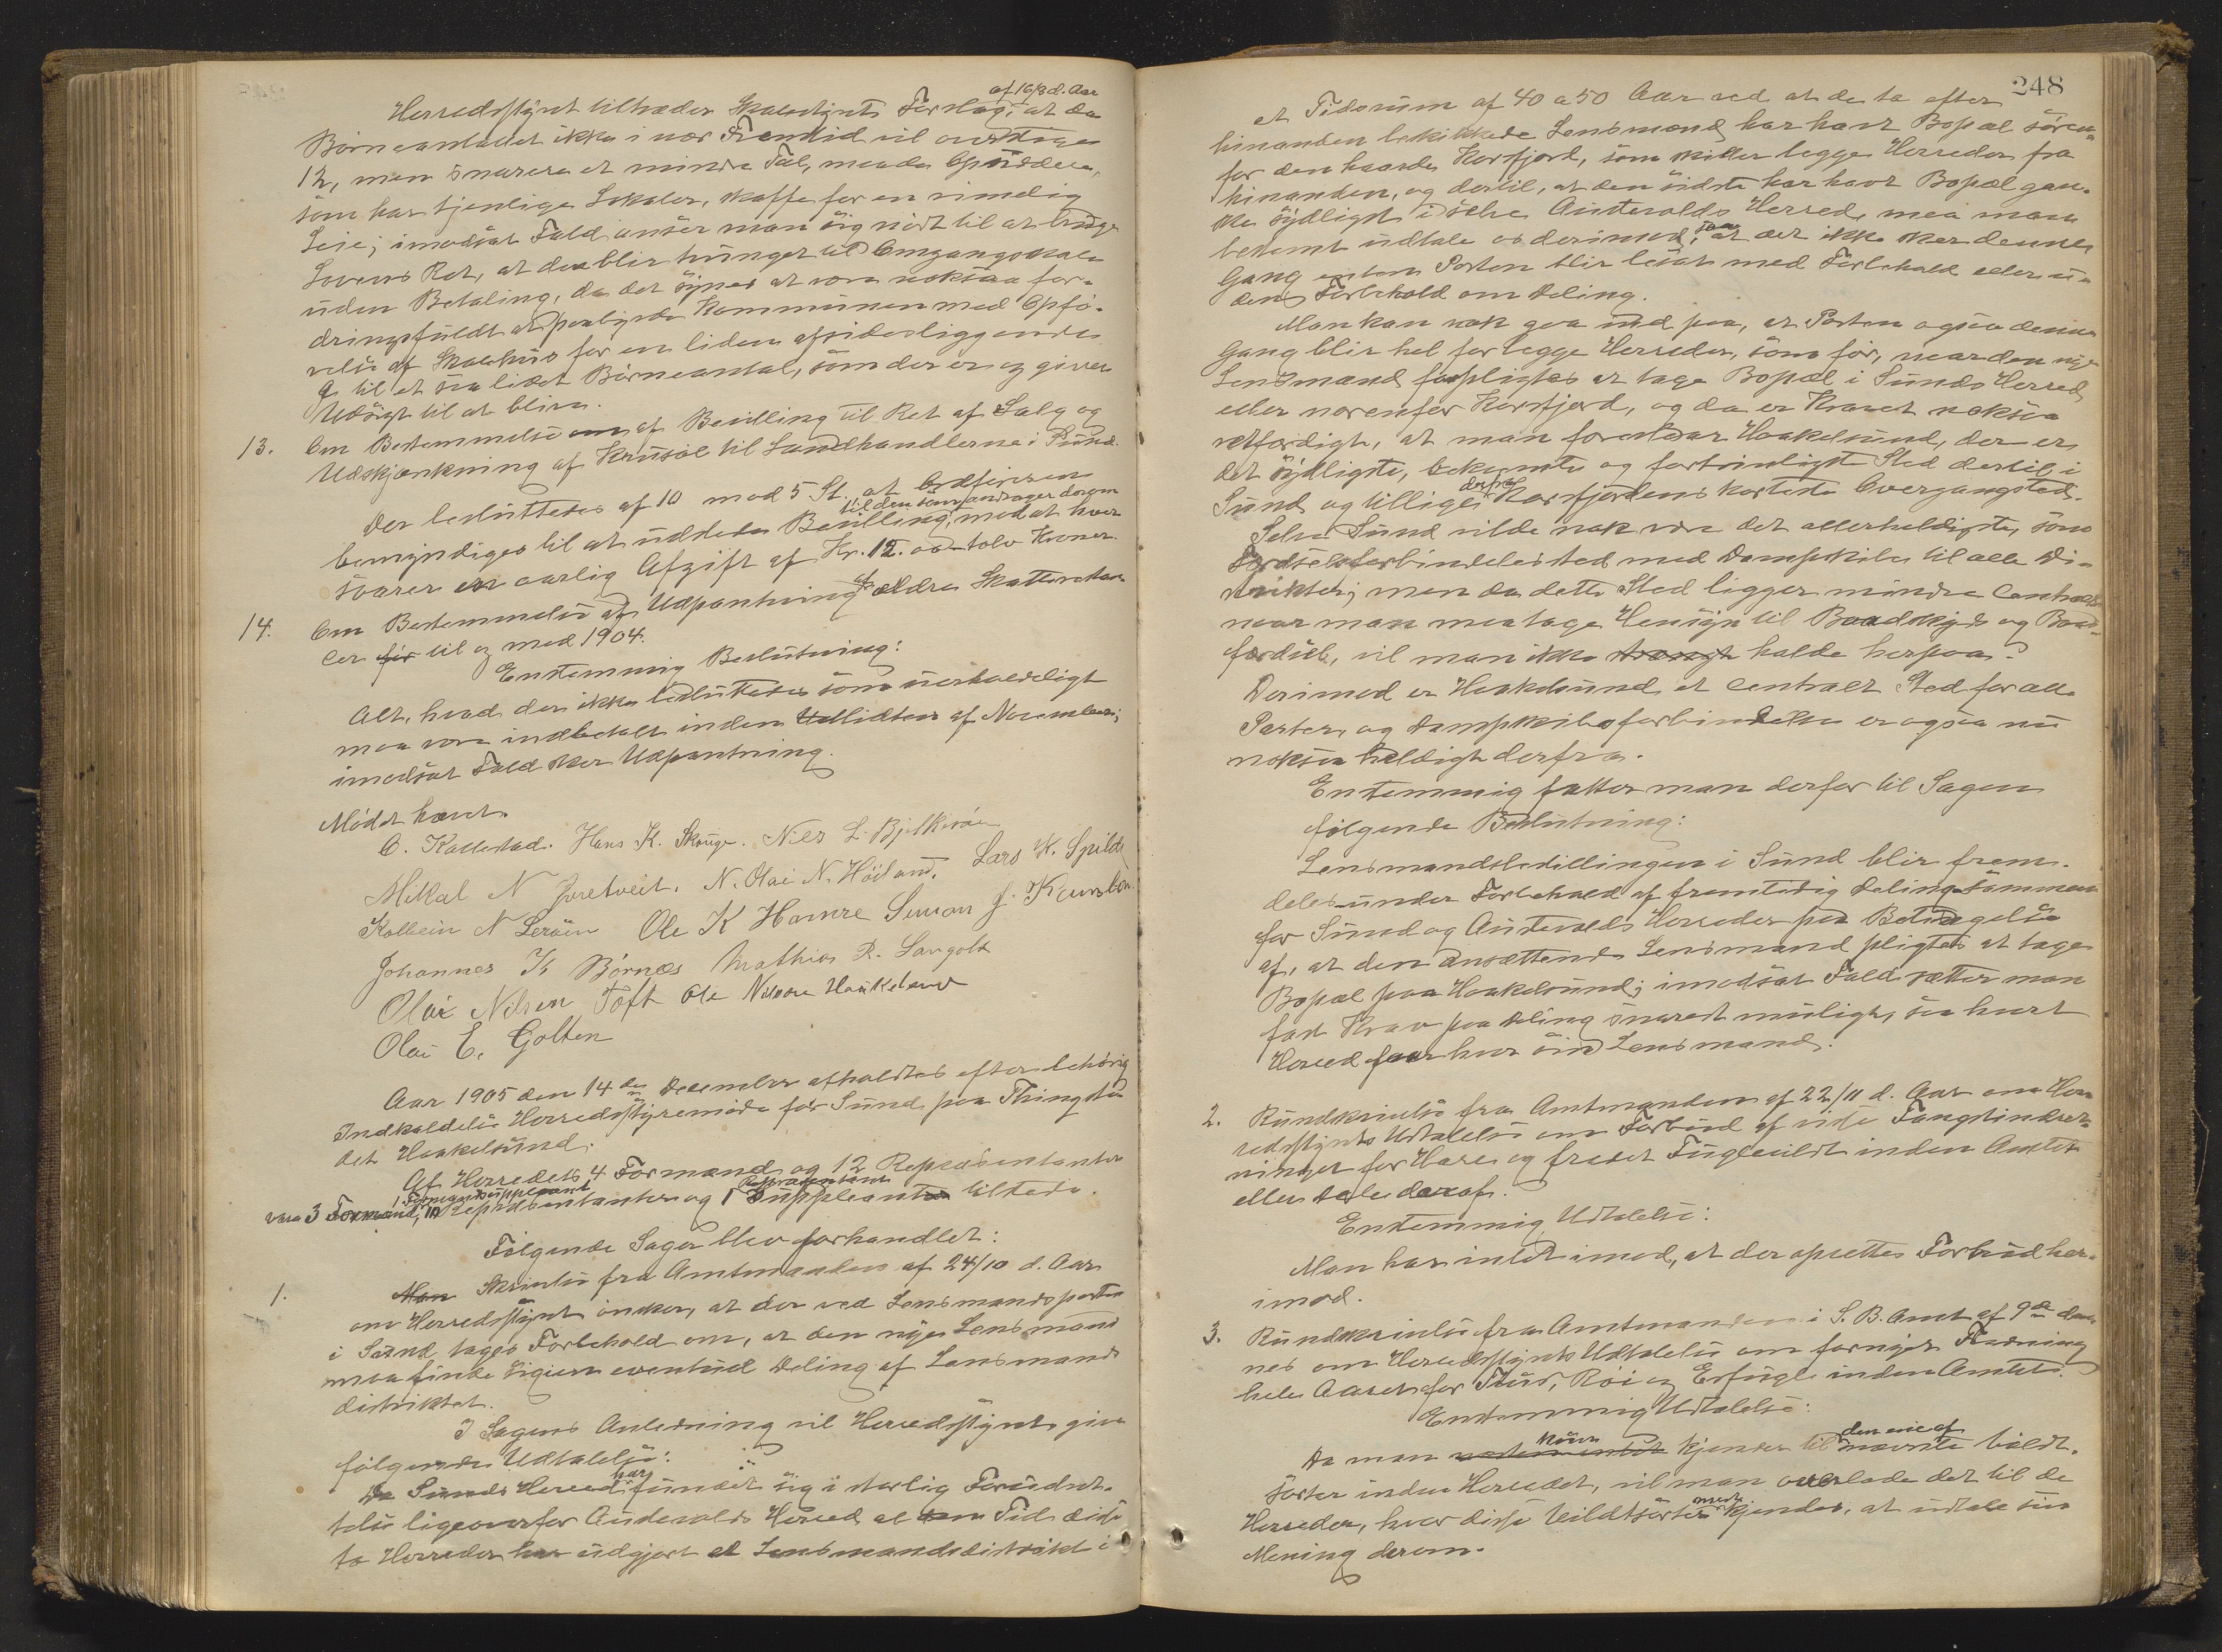 af 16/8 d. Aar
Herredsstyret tiltræder Skolestyrets Forslag; at da
Børneantallet ikke i nær Fremtid vil overstige
12, men snarere et mindre Tal, maa de Opsiddere,
som har tjenlige Lokaler, skaffe for en rimelig
Leie; imodsat Fald anser man sig nødt til at bruge
Lovens Ret, at de blir tvunget til Omgangsskole
uden Betaling, da det synes at være noksaa for-
dringsfuldt at paalægge Kommunen med Opfø-
relse af Skolehus for en liden afsidesliggende
til et saa lidet Børneantal, som der er og giver
Udsigt til at blive.
13. Om Bestemmelse af Bevilling til Ret af Salg og
Udskjænkning af Krusøl til Landhandlerne i Sund.
Der besluttedes af 10 mod 5 St. at Ordføreren
til den som andrager derom
bemyndiges til at uddele Bevilling, mod at hver
svarer en aarlig Afgift af Kr. 12.00 - tolv Kroner.
14. Om Bestemmelse af Udpantning af ældre Skatterestan-
cer før til og med 1904.
Enstemmig Beslutning:
Alt, hvad der ikke besluttedes som uerholdeligt
maa være indbetalt inden Udlidten af November;
imodsat Fald sker Udpantning.
Mødet hævet.
O. Kallestad. Hans K. Skouge. Nils L. Bjelkerøen
Mikkal N Juvetveit. N. Olai N. Höiland. Lars W. Spilde
Kolbein N Lerøen Ole K Hamre Simon J. Knudsen.
Johannes K Börnæs Mathias R. Langolt
Olai Nilsen Toft Ole Nilsen Haakelsund
Olai E. Golten
Aar 1905 den 14de December afholdtes efter behørig
Indkaldelse Herredsstyremøde før Sund paa Thingste-
det Haakelsund.
Af Herredets 4 Formænd og 12 Repræsentanter
1 Formandssuppleant Repræsentant
vare 3 Formænd, 10 Repræsentanter og 1 Suppleant tilstede.
Følgende Sager blev forhandlet:
1. Man Skrivelse fra Amtmanden af 24/10 d. Aar
om Herredsstyret ønsker, at der ved Lensmandsposten
i Sund tages Forbehold om, at den nye Lensmand
maa finde sig i en eventuel Deling af Lensmands
distriktet.
I Sagens Anledning vil Herredsstyret give
følgende Udtalelse:
har
Da Sunds Herred fundet sig i særlig Forudret-
telse ligeoverfor Austevolds Herred al den Tid disse
to Herreder har udgjort et Lensmandsdistrikt i
248
et Tidsrum af 40 a 50 Aar ved at de to efter
hinanden beskikkede Lensmænd har havt Bopæl søren-
for den haarde Korsfjord, som skiller begge Herreder fra
hinanden, og dertil, at den sidste har havt Bopæl gan-
ske sydligst i selve Austevolds Herred, maa man
bestemt udtale os derimod, at det ikke sker denne
Gang enten Posten blir besat med Forbehold eller u-
den Forbehold om Deling.
Man kan nok gaa ind paa, at Posten ogsaa denne
Gang blir hel for begge Herreder, som før, naar den nye
Lensmand forpligtes at tage Bopæl i Sunds Herred,
eller norenfor Korsfjord, og da er Kravet noksaa
retfærdigt, at man foreslaar Haakelsund, der er
det sydligste, bekvemte og fortrinligste Sted dertil i
derfra
Sund og tillige Korsfjordens korteste Overgangsted.
Selve Sund vilde nok være det allerheldigste, som
Færdselsforbindelsested med Dampskibe til alle Di-
strikter; men da dette Sted ligger mindre Centralt
naar man maa tage Hensyn til Baadskyds og Baad-
færdsel, vil man ikke strengt holde herpaa.
Derimod er Haakelsund et centralt Sted for alle
Parter, og Dampskibsforbindelse er ogsaa nu
noksaa heldigt derfra.
Enstemmig fatter man derfor til Sagen
følgende Beslutning:
Lensmandsbestillingen i Sund blir frem-
deles under Forbehold af fremtidig Deling sammen
for Sund og Austevolds Herreder paa Betingelse
af, at den ansættende Lensmand pligtes at tage
Bopæl paa Haakelsund; imodsat Fald sætter man
fast Krav paa Deling snarest muligt, saa hvert
Herred faar hver sin Lensmand.
2. Rundskrivelse fra Amtmanden af 22/11 d. Aar om Her-
redsstyrets Udtalelse om Forbud af visse Fangstindret-
ninger for Hare og fredet Fuglevildt inden Amtet
eller Dele deraf.
Enstemmig Udtalelse:
Man har intet imod, at der opsettes Forbud her-
imod.
3. Rundskrivelse fra Amtmanden i S. B. Amt af 9de den-
nes om Herredsstyrets Udtalelse om fornyet Fredning
hele Aaret for Tiur, Røi og Orfugl inden Amtet.
Enstemmig Udtalelse:
den ene af
Da man kjender til nævnte Vildt-
sorter inden Herredet, vil man overlade det til de
mest
Herreder, hvor disse Vildtsorter kjendes, at udtale sin
Mening derom.